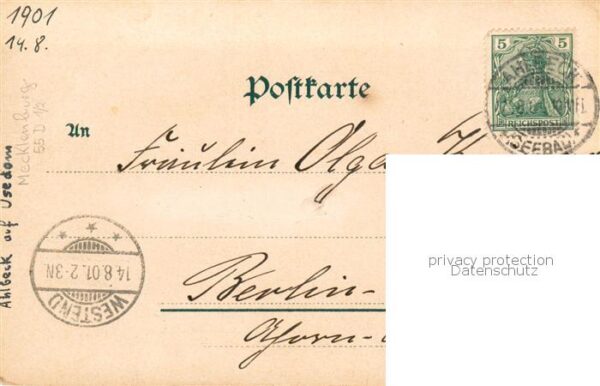 1901
14.8.
Mecklenburg
55 D 1/2
Ahlbeck auf Usedom
Postkarte
An
Fräulein Olga
Berlin-
Ahorn-
5 5
REICHSPOST
(SEEBAD)
14.8.01.2-3N
WESTEND
privacy protection
Datenschutz